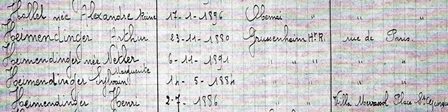 Hallet née Alexandre Marie 17-1-1896 Obernai " "
Heimendinger Arthur 23-11-1880 Grussenheim H.R. rue de Paris.
Heimendinger née Netter 6-11-1891 " " " "
Heimendinger Sylvain 14-5-1884 " " " "
Heimendinger Henri 2-7-1886 " " Villa Place